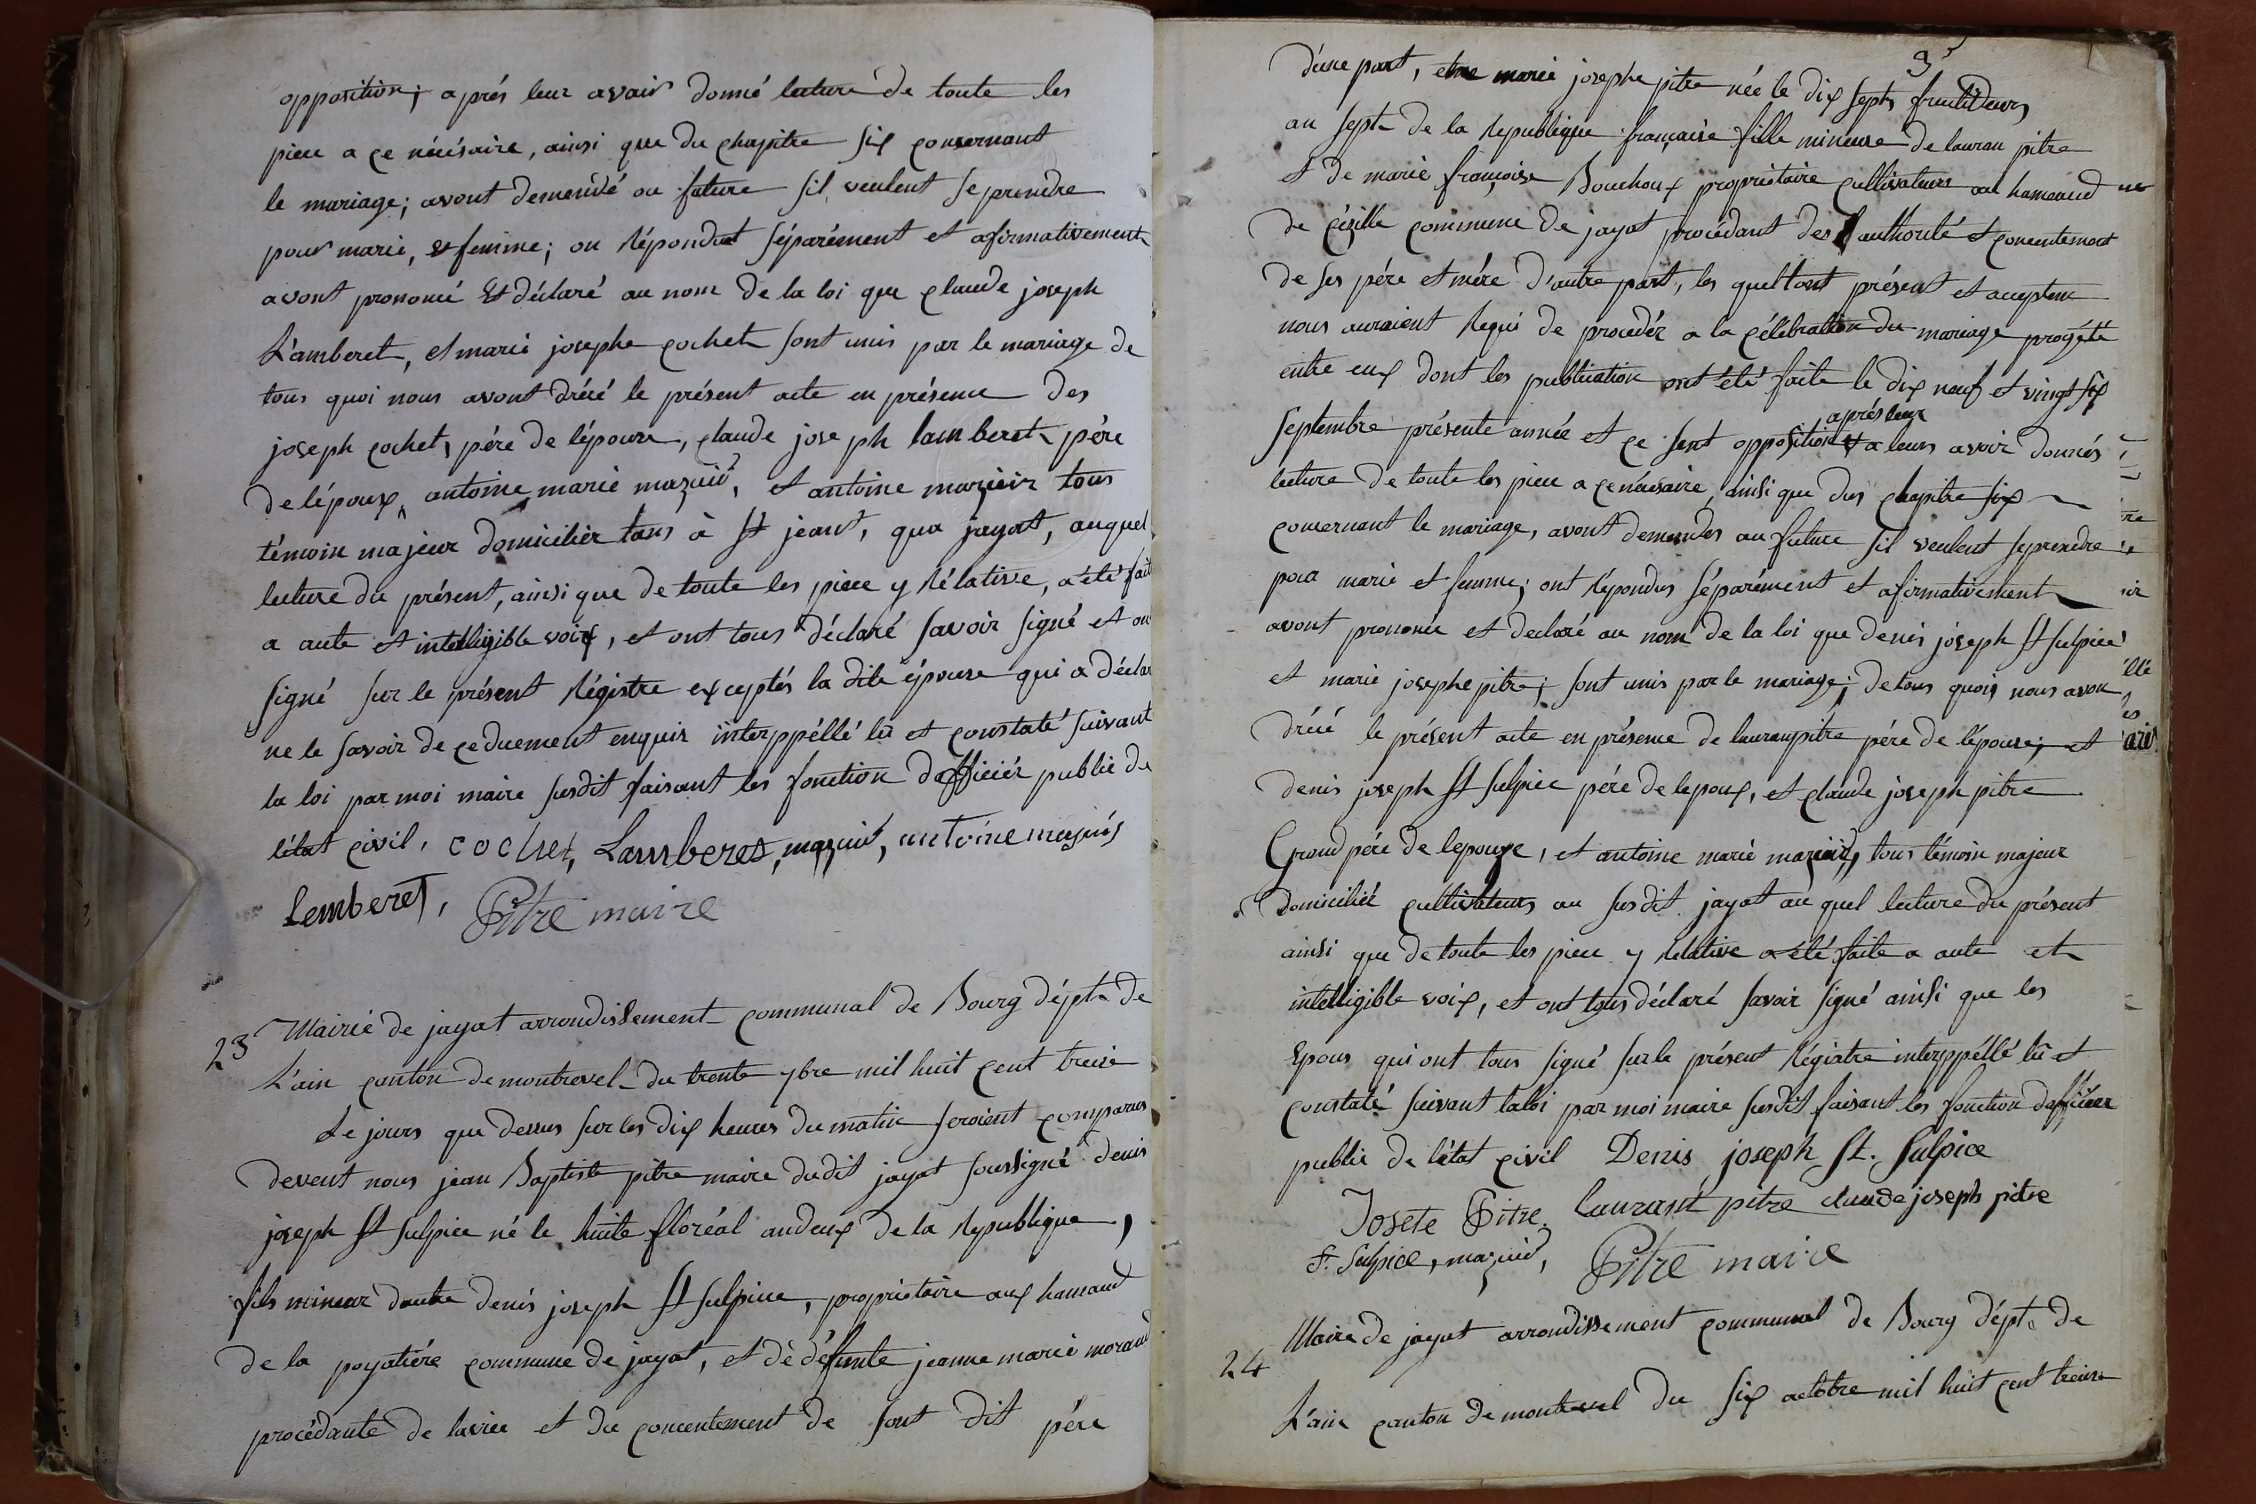 opposition; aprés leur avair donné lecture de toute les
piece a ce nécésaire, ainsi que du chapitre six consernant
le mariage; avont demendé au future sil veulent se prendre
pour marié, et femme; on Répondut séparément et afirmativement
avont prononcé Et déclaré au nom de la loi que claude joseph
L'amberet, et marié josephe cochet sont unis par le mariage de
tous quoi nous avont dréçé le présent acte en présence des
joseph cochet, pére de lépouse, claude joseph lamberet pére
de lépoux, antoine marié mazuir, et antoine mazuir tous
témoin majeur domicilier tans à St jean, qua jayat, auquel
lecture du présent, ainsi que de toute les piece y Rélative, a été fait
a aute et intelligible voix, et ont tous déclaré savoir signé et on
signé sur le présent Régistre exceptés la dite épouse qui a déclar
ne le savoir de ce duement enquis interppéllé lû et constaté suivant
la loi par moi maire susdit faisant les fonction d'afficiér public de
létat civil. cochet, Lamberet, mazuir, antoine mazuir
Lemberet, Pitre maire
23 Mairié de jayat arrondissement communal de Bourg dépt. de
L'ain canton de montrevel du trente 7bre mil huit cent treise
Le jours que dessus sur les dix heures du matin seroient comparus
devent nous jean Baptiste pitre maire dudit jayat soussigné denis
joseph St sulpice né le huite floréal an deux de la Republique,
fils mineur dautre denis joseph St sulpice, proprietaire aux hamaud
de la poyatiére commune de jayat, et de défunte jeanne marié morand
procédante de lavice et du concentement de sont dit pére
3
d'une part, et marié josephe pitre née le dix septs fructidours
an sept de la Republique française fille mineure de lauran pitre
et de marié françoise Bouchoux propriétaire cultivateurs au hameaud
de cézille commune de jayat procédant des l'authorité et concentement
de ses pére et mére d'autre part, les quel tont présent et acceptent
nous auraient Requi de procedér a la célébration du mariage progété
entre eux dont les publication ont été faite le dix neuf et vingt six
septembre présente année et ce sent opposition aprés leur a leurs avoir donnés
lecture de toute les piece a ce nécésaire, ainsi que dus chapitre six
concernant le mariage, avont demender au future sil veulent se prendre
pour marié et femme; ont Répondus séparément et afirmativement
avont prononcée et declaré au nom de la loi que denis joseph St sulpice
et marié josephe pitre; sont unis par le mariage; de tous quoi, nous avon
dréçé le présent acte en présence de lauran pitre pére de lépouse, et
denis joseph St sulpice pére de lepoux, et claude joseph pitre
Grand pére de lepouse, et antoine marié mazuir, tous témoin majeur
domiciliér cultivateurs au susdit jayat au quel lecture du présent
ainsi que de toute les piece y Relative a été faite a aute et
intelligible voix, et ont tous déclaré savoir signé ainsi que les
Epous qui ont tous signé sur le présent Régistre interppéllé lû et
constaté suivant la loi par moi maire susdit faisant les fonction d'afficiér
public de létat civil Denis joseph St. Sulpice
Josete Pitre. laurant pitre claude joseph pitre
St. Sulpice, mazuir, Pitre maire
24 Maire de jayat arrondissement communal de Bourg dépt. de
L'ain canton de montrevel du six actobre mil huit cent treise